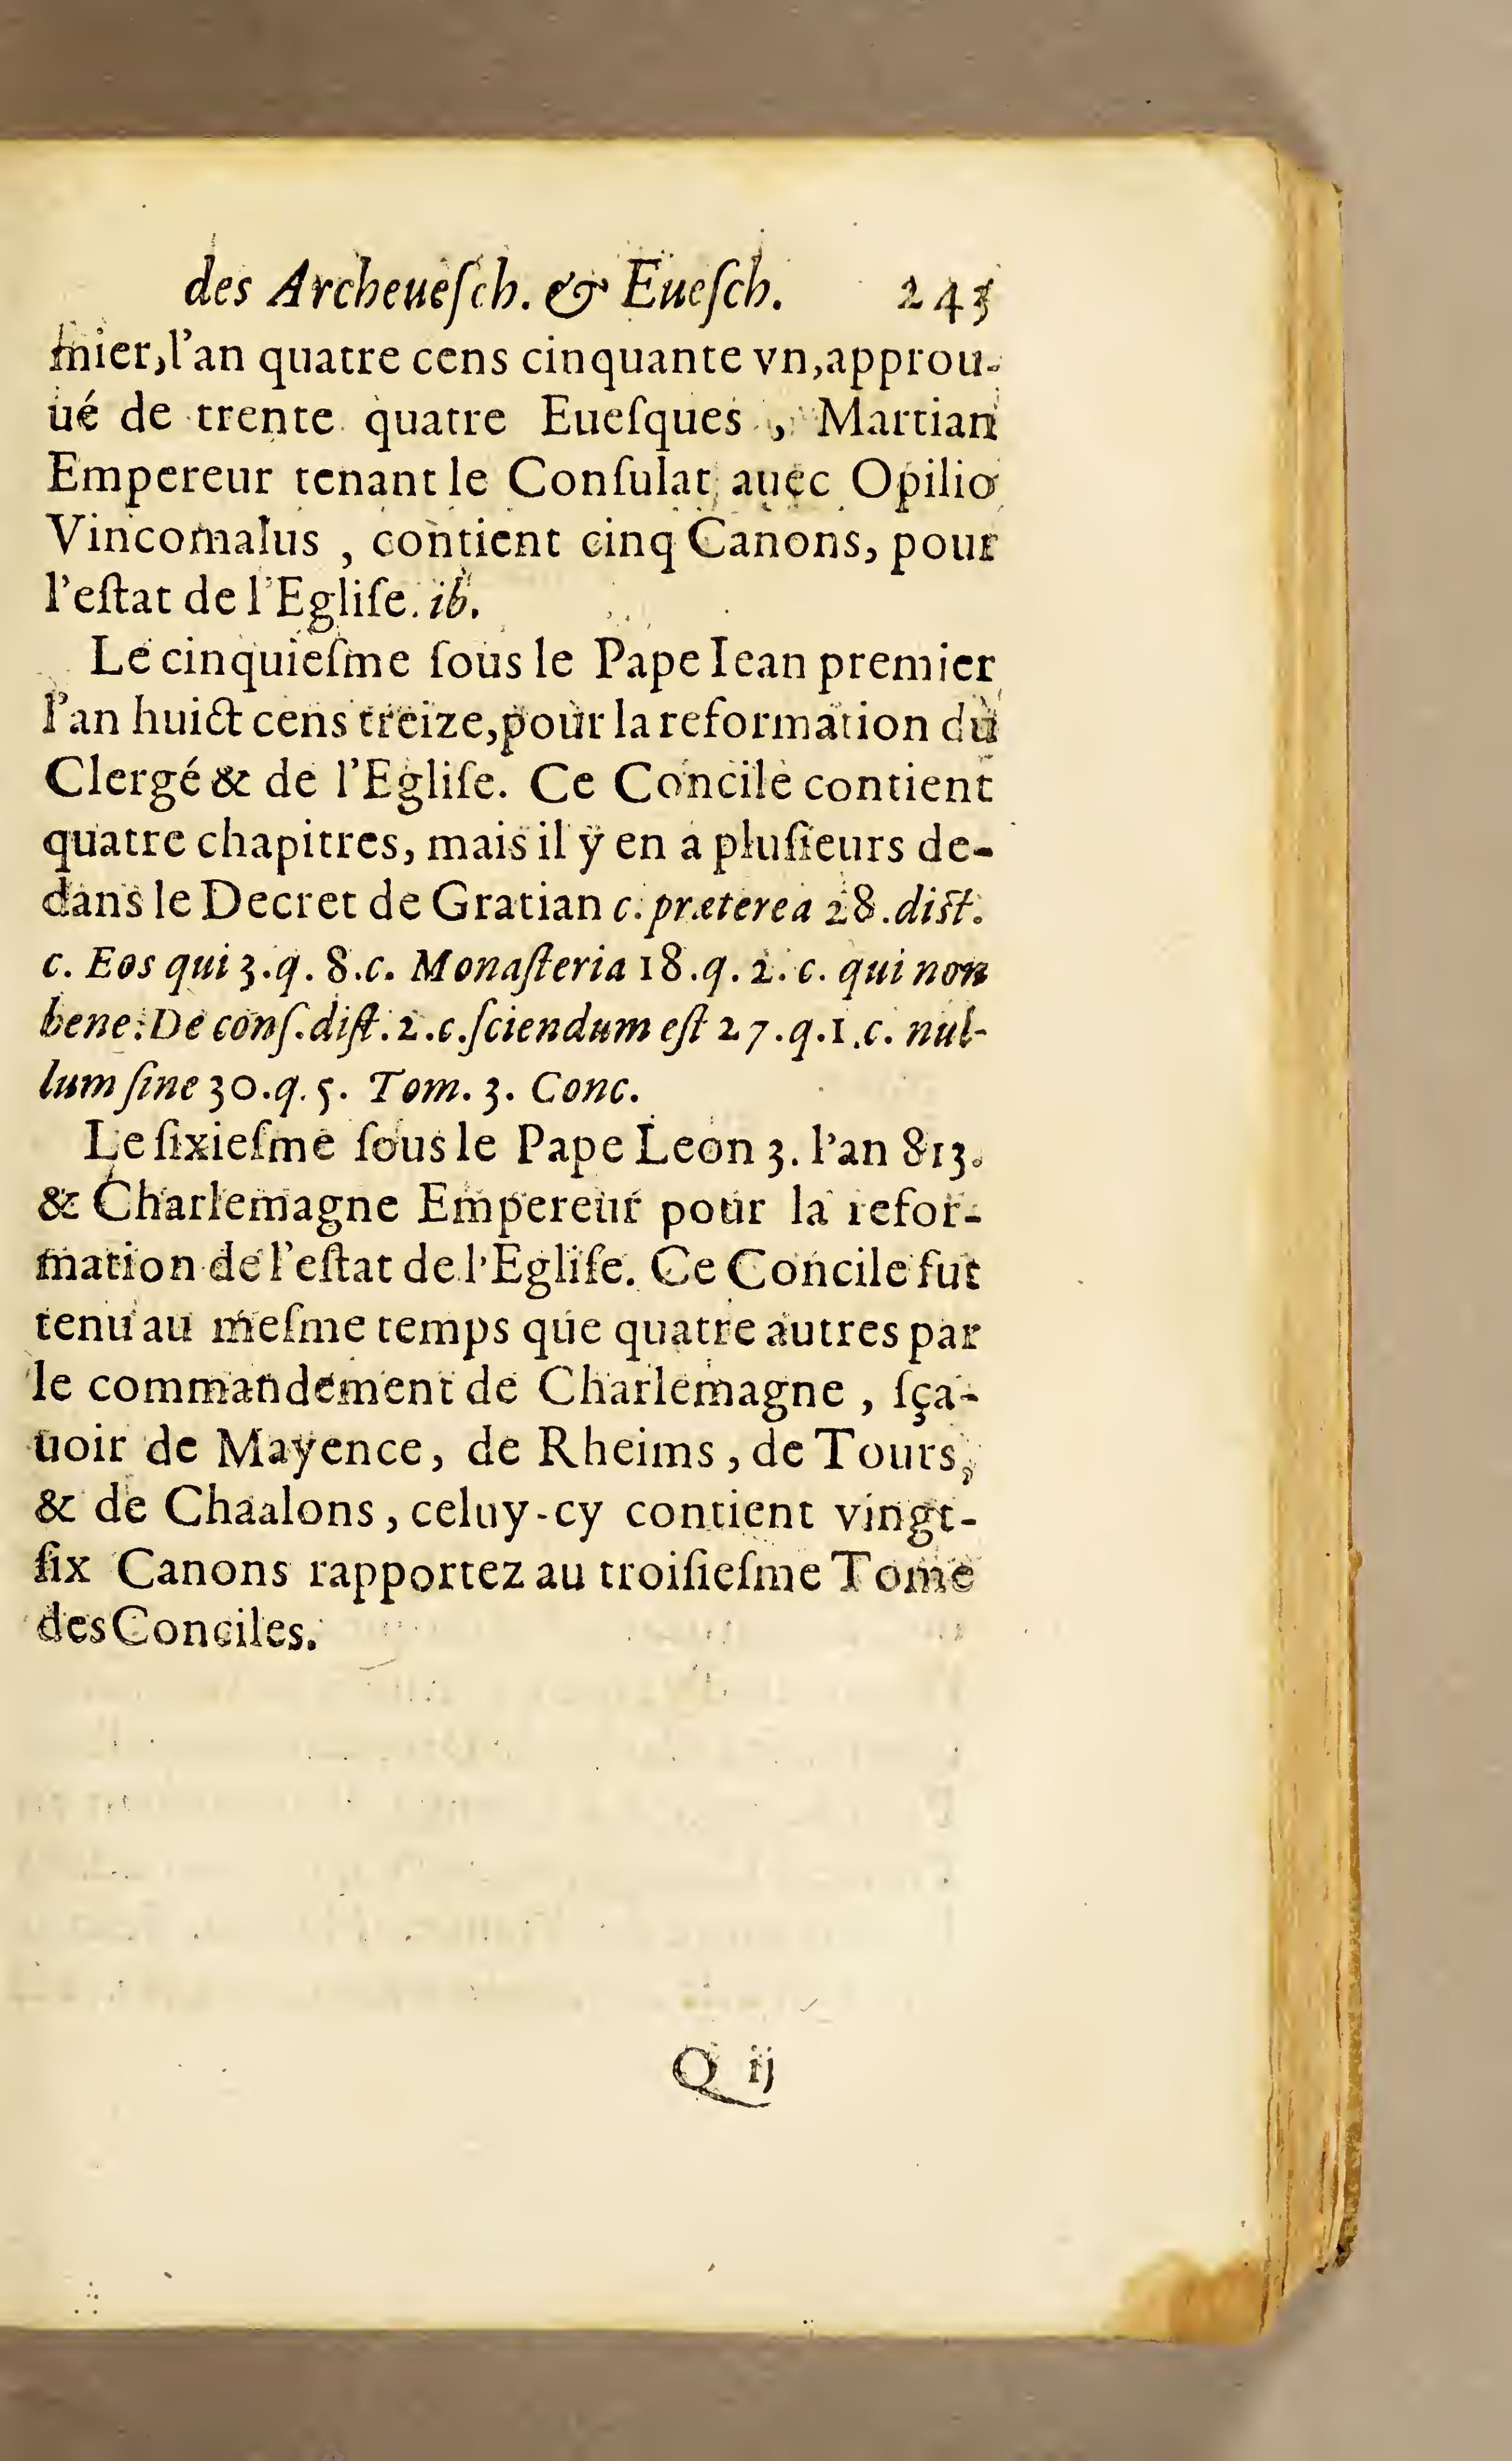 des Archeueſch. & Eueſch. 243
mier, l'an quatre cens cinquante vn, approu-
ué de trente quatre Eueſques, Martian
Empereur tenant le Conſulat auec Opilio
Vincomalus, contient cinq Canons, pour
l'eſtat de l'Egliſe. ib.
Le cinquieſme ſous le Pape Iean premier
l'an huict cens treize, pour la reformation du
Clergé & de l'Egliſe. Ce Concile contient
quatre chapitres, mais il y en a pluſieurs de-
dans le Decret de Gratian c. præterea 28. diſt.
c. Eos qui 3. q. 8. c. Monaſteria 18. q. 2. c. qui non
bene. De conſ. diſt. 2. c. ſciendum eſt 27. q. 1. c. nul-
lum ſine 30. q. 5. Tom. 3. Conc.
Le ſixieſme ſous le Pape Leon 3. l'an 813.
& Charlemagne Empereur pour la refor-
mation de l'eſtat de l'Egliſe. Ce Concile fut
tenu au meſme temps que quatre autres par
le commandement de Charlemagne, ſça-
uoir de Mayence, de Rheims, de Tours,
& de Chaalons, celuy-cy contient vingt-
ſix Canons rapportez au troiſieſme Tome
des Conciles.
Q ij